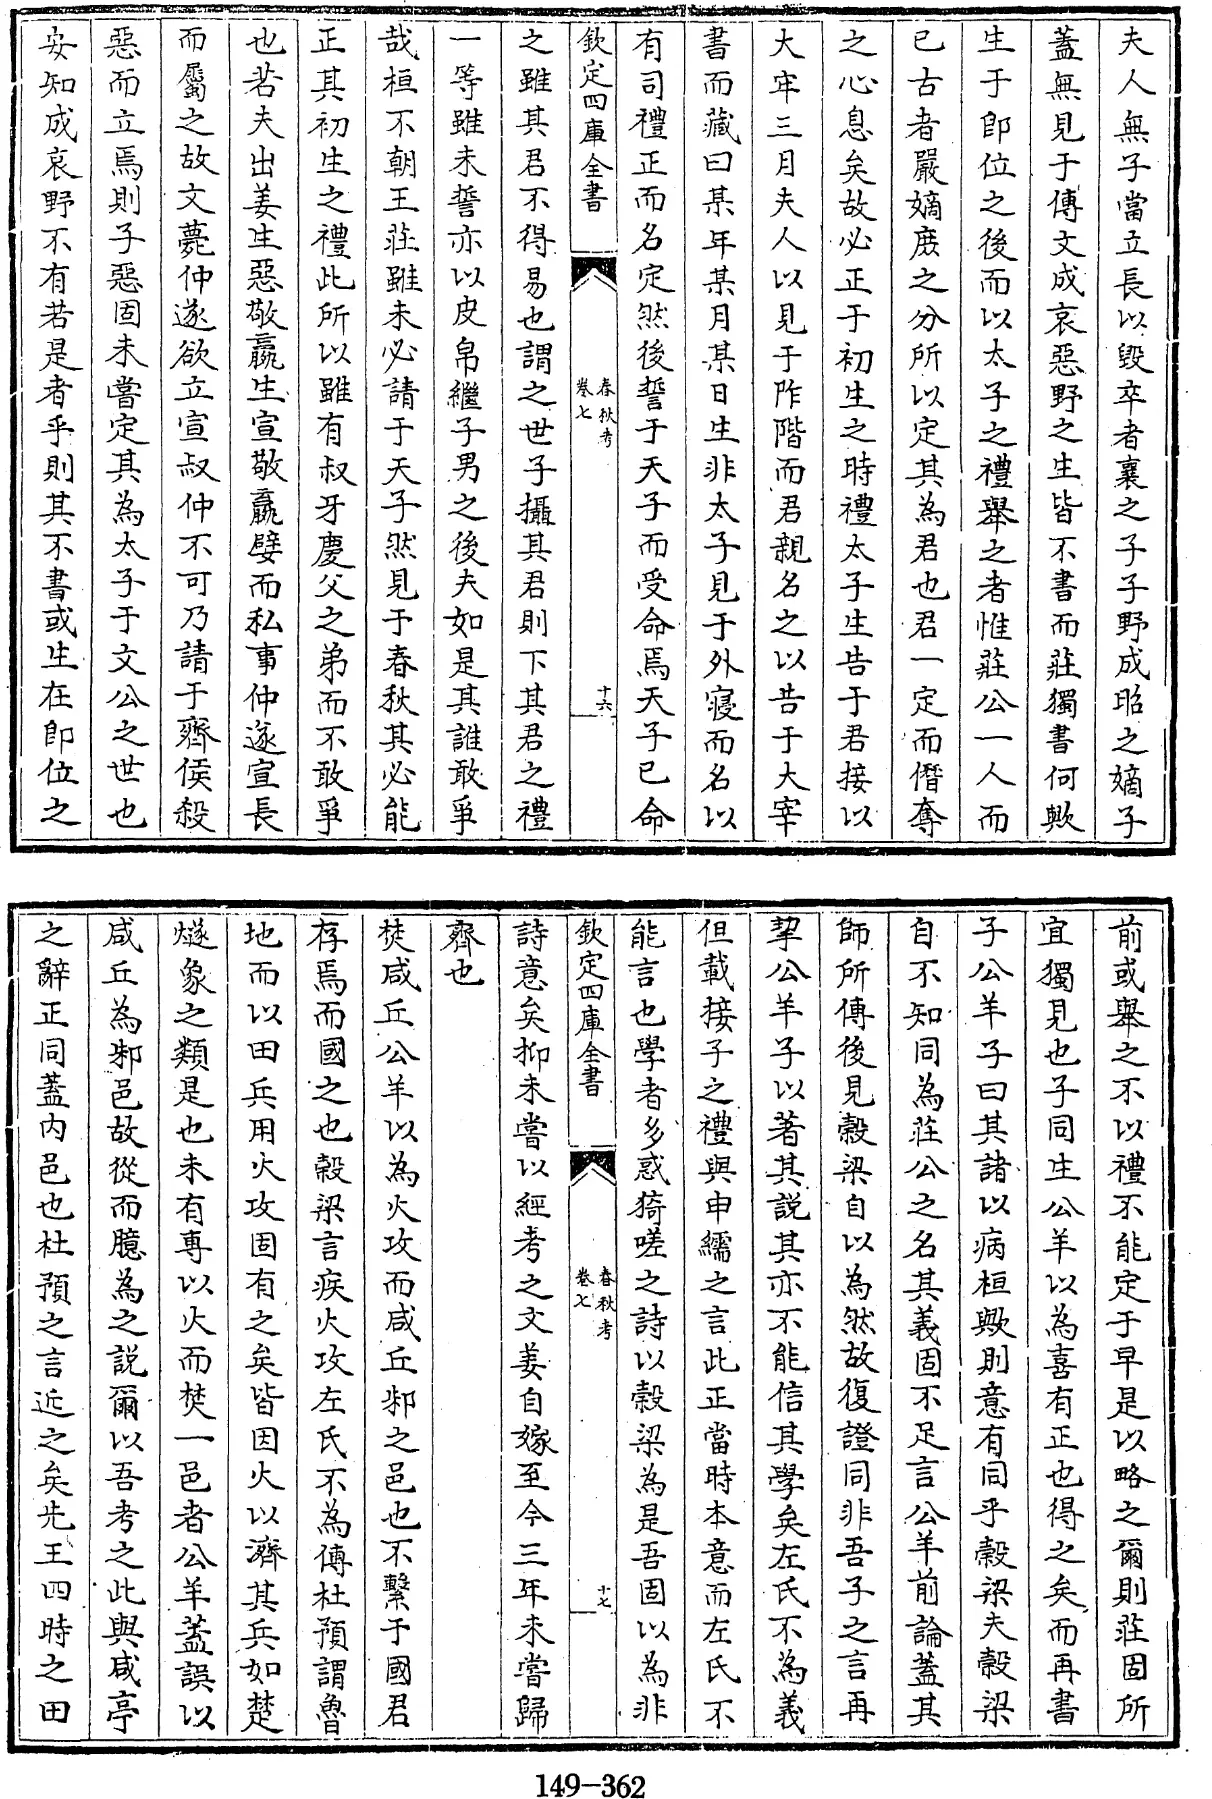 夫人無子當立長以毀卒者襄之子子野成昭之嫡子
蓋無見于傳文成哀惡野之生皆不書而莊獨書何歟
生于即位之後而以太子之禮舉之者惟莊公一人而
已古者嚴嫡庶之分所以定其為君也君一定而僭奪
之心息矣故必正于初生之時禮太子生告于君接以
大牢三月夫人以見于阼階而君親名之以告于大宰
書而藏曰某年某月某日生非太子見于外寢而名以
有司禮正而名定然後誓于天子而受命焉天子已命
欽定四庫全書
春秋考
卷七
十六
之雖其君不得易也謂之世子攝其君則下其君之禮
一等雖未誓亦以皮帛繼子男之後夫如是其誰敢爭
哉桓不朝王莊雖未必請于天子然見于春秋其必能
正其初生之禮此所以雖有叔牙慶父之弟而不敢爭
也若夫出姜生惡敬嬴生宣敬嬴嬖而私事仲遂宣長
而屬之故文薨仲遂欲立宣叔仲不可乃請于齊侯殺
惡而立焉則子惡固未嘗定其為太子于文公之世也
安知成哀野不有若是者乎則其不書或生在即位之
前或舉之不以禮不能定于早是以略之爾則莊固所
宜獨見也子同生公羊以為喜有正也得之矣而再書
子公羊子曰其諸以病桓歟則意有同乎穀梁夫穀梁
自不知同為莊公之名其義固不足言公羊前論蓋其
師所傳後見穀梁自以為然故復證同非吾子之言再
挈公羊子以著其說其亦不能信其學矣左氏不為義
但載接子之禮與申繻之言此正當時本意而左氏不
能言也學者多惑猗嗟之詩以穀梁為是吾固以為非
欽定四庫全書
春秋考
卷七
十七
詩意矣抑未嘗以經考之文姜自嫁至今三年未嘗歸
齊也
焚咸丘公羊以為火攻而咸丘邾之邑也不繫于國君
存焉而國之也穀梁言疾火攻左氏不為傳杜預謂魯
地而以田兵用火攻固有之矣皆因火以濟其兵如楚
燧象之類是也未有專以火而焚一邑者公羊蓋誤以
咸丘為邾邑故從而臆為之說爾以吾考之此與咸亭
之辭正同蓋内邑也杜預之言近之矣先王四時之田
149-362